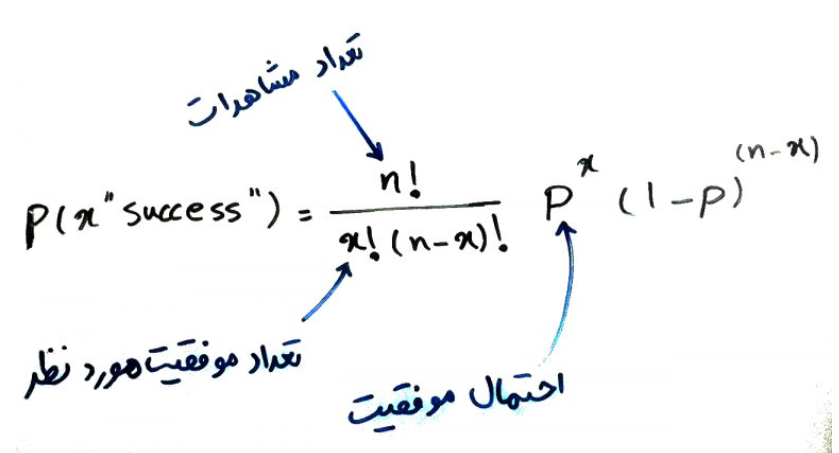 تعداد مشاهدات
P(x "success") = n! / x! (n-x)! P^x (1-p)^(n-x)
تعداد موفقیت مورد نظر
احتمال موفقیت